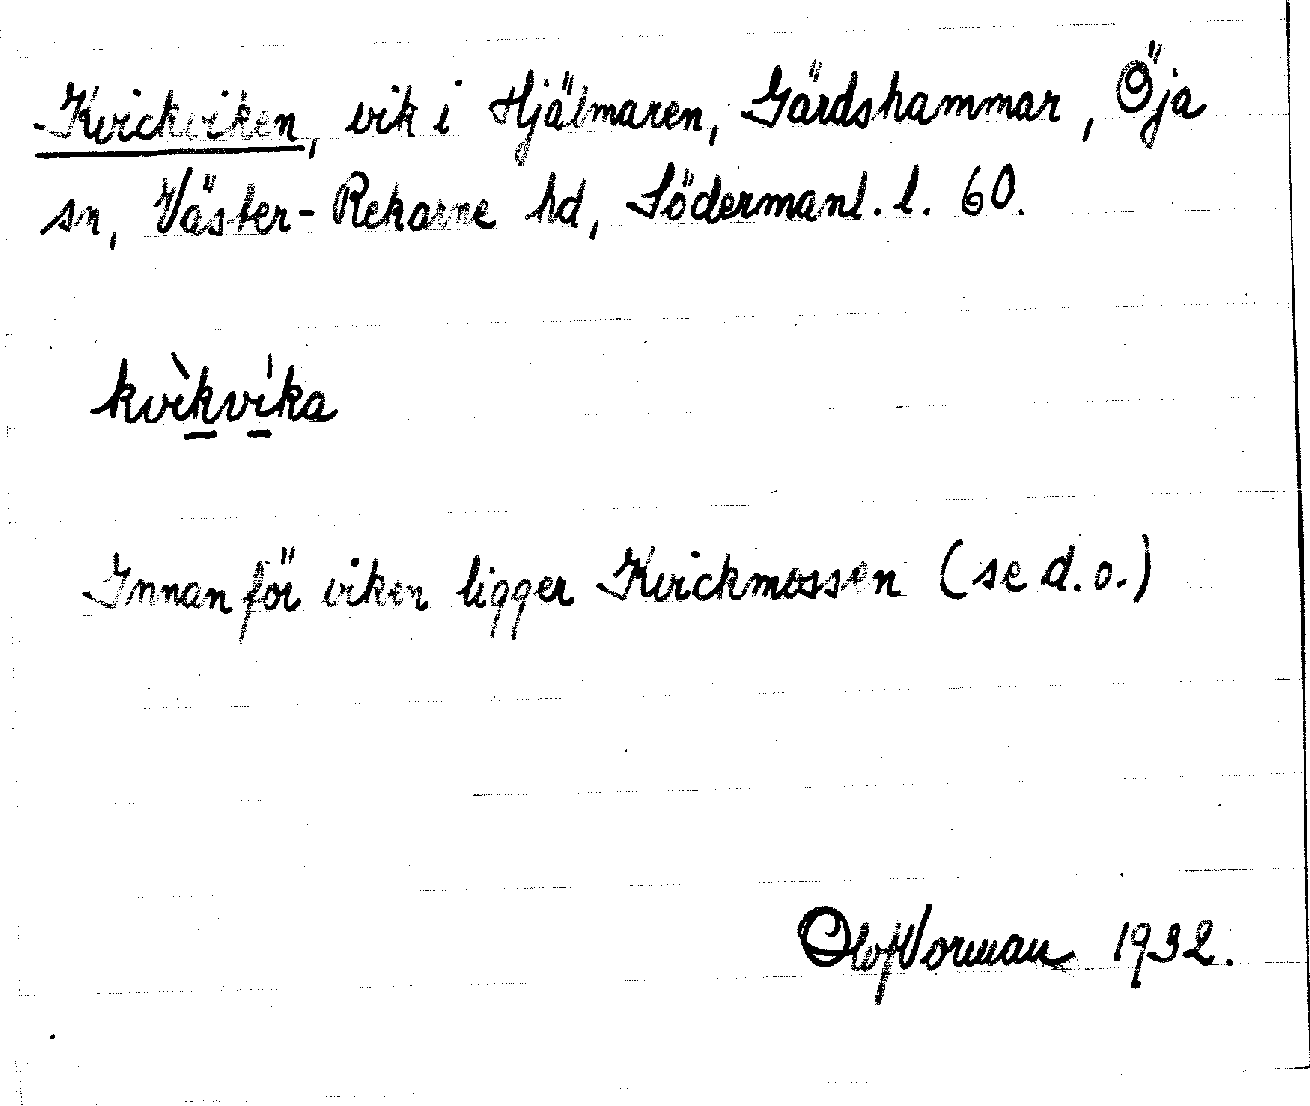 Kvickviken, vik i Hjälmaren, Gärdshammar, Öja
sn, Väster-Rekarne hd, Södermanl. l. 60.
kvìkvíka
Innanför viken ligger Kvickmossen (se d.o.)
Olof Vorman 1932.